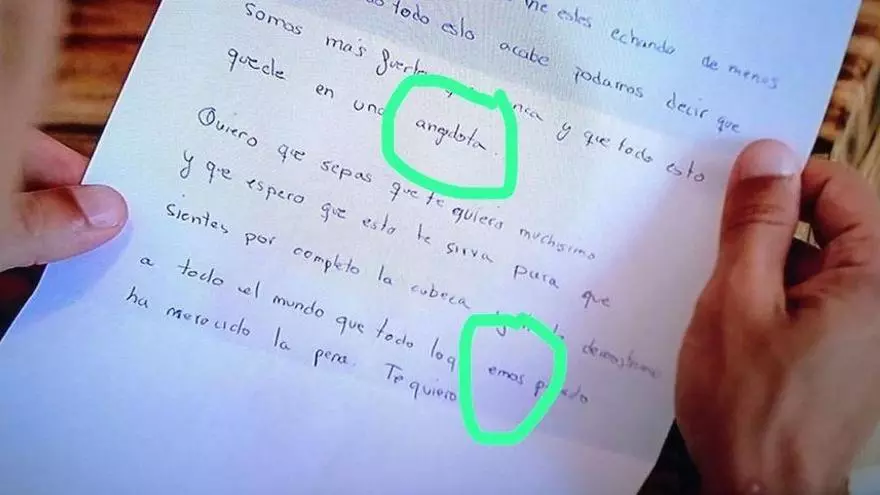 me estes echando de menos
todo esto acabe podamos decir que
somos más fuertes que nunca y que todo esto
quede en una angdota.
Quiero que sepas que te quiero muchisimo
y que espero que esto te sirva para que
sientes por completo la cabeza y
a todo el mundo que todo loq emos pasado
ha merecido la pena. Te quiero